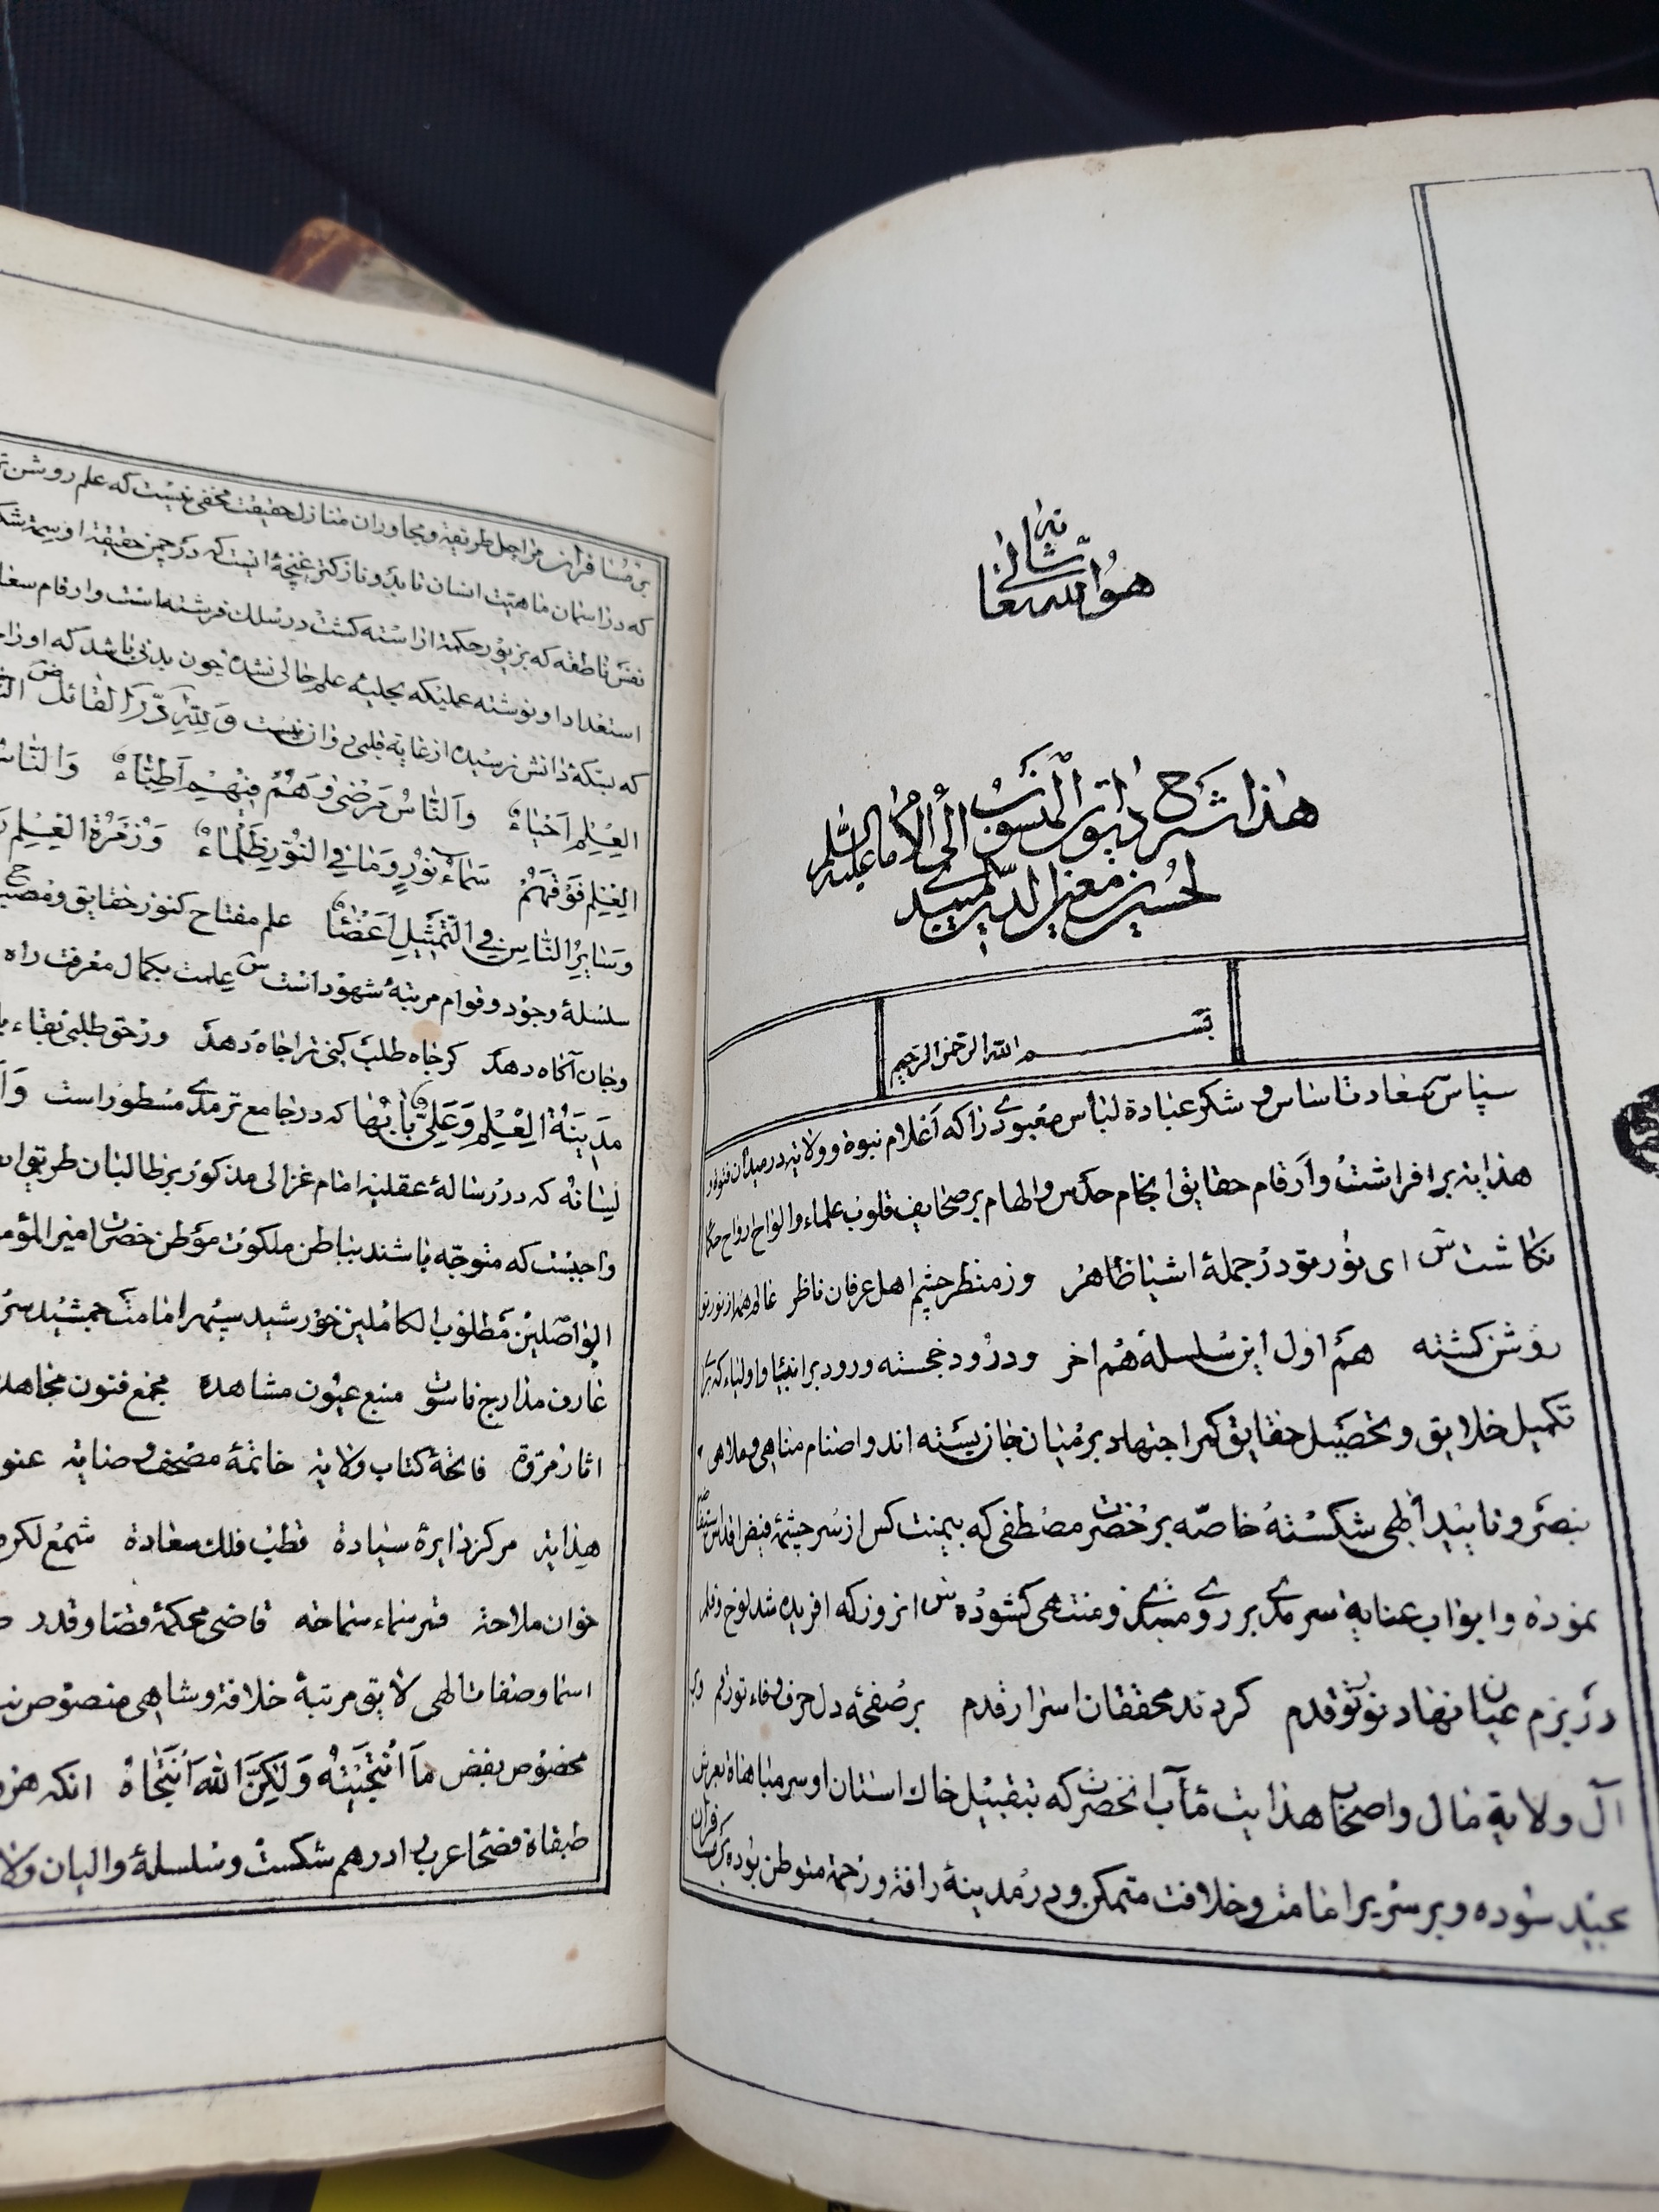 هو الله تعالى شانه
هذا شرح ديوان المنسوب الى الامام عليه السلم
لحسين بن معين الدين الميبدى
بسم الله الرحمن الرحيم
سپاس سعادت اساس و شکر عبادة لباس معبودی را که اعلام نبوة وولایة در میدان
هدایة بر افراشت وارقام حقایق انجام حدس والهام بر صحایف قلوب علماء والواح ارواح حکما
نکاشت س ای نور تو در جملهٔ اشیا ظاهر وز منظر چشم اهل عرفان ناظر عالم همه از نور تو
روشن کشته هم اول این سلسله هم اخر و درود خجسته ورود بر انبیا واولیاء که برای
تکمیل خلایق وتحصیل حقایق کمر اجتهاد بر میان جان بسته اند واصنام مناهی وملاهی
بنصر وتایید الهی شکسته خاصه بر حضرت مصطفی که بیمنت کس از سر چشمهٔ فیض اقدس
نموده وابواب عنایة سرمدی بر روی مبتدی ومنتهی کشوده س انروز که افریده شد لوح وقلم
در بزم عیان نهاد نو تو قدم کردند محققان اسرار قدم بر صفحه دل حرف وفاء تو رقم
آل ولایة مال واصحاب هدایت مآب انحضرت که بتقبیل خاك استان او سر مباهاة بعرش
مجید سوده وبر سریر امامت وخلافت متمکن ودر مدینهٔ رافة ورحمة متوطن بوده
بر مسافران مراحل طریقة ومجاوران منازل حقیقت مخفی نیست که علم روشن
که در اسمان ماهیت انسان تابد ونازکتر غنچهٔ ایست که در چمن حقیقة او
نفس ناطقه که بزیور حکمة اراسته کشت در سلك فرشته است وارقام
استعداد او نوشته عملیکه بحلیهٔ علم حالی نشده چون بدنی باشد که او را
که بسکهٔ دانش نرسیده از غایة قلبی روان نیست ولله در القائل
العلم احیاء والناس مرضی وهم فیهم اطباء والناس
العلم فوقهم سماء نور وما في النور ظلماء وزمرة العلم
وسایر الناس في التمثیل اعضاء علم مفتاح کنوز حقایق
سلسلهٔ وجود وقوام مرتبهٔ شهود است س علمت بکمال معرفت راه
وجان آکاه دهد کر جاه طلب کنی ترا جاه دهد ور حق طلبی بقاء
مدینة العلم وعلی بابها که در جامع ترمدی مسطور است
لیسانه که در رسالهٔ عقلیه امام غزالی مذکور بر طالبان طریق
واجبست که متوجه باشند بباطن ملکوت مؤطن حضرت امیر
الواصلین مطلوب الکاملین خورشید سپهر امامت جمشید
عارف مدارج ناسوت منبع عیون مشاهده مجمع فنون
اثار مروة فاتحهٔ کتاب ولایة خاتمهٔ مصحف وصایة
هدایة مرکز دایرهٔ سیادة قطب فلك سعادة شمع
خوان ملاحة قمر سماء سماحة قاضی محکمهٔ قضا وقدر
اسما وصفات الهی لایق مرتبهٔ خلافة وشاهی منصوص
مخصوص بفیض ما انتجیته ولکن الله انتجاه انکه
طبقاة فصحا عرب را در هم شکست وسلسلهٔ والیان